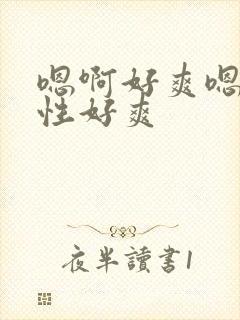 嗯啊好爽嗯
性好爽
夜半讀書1